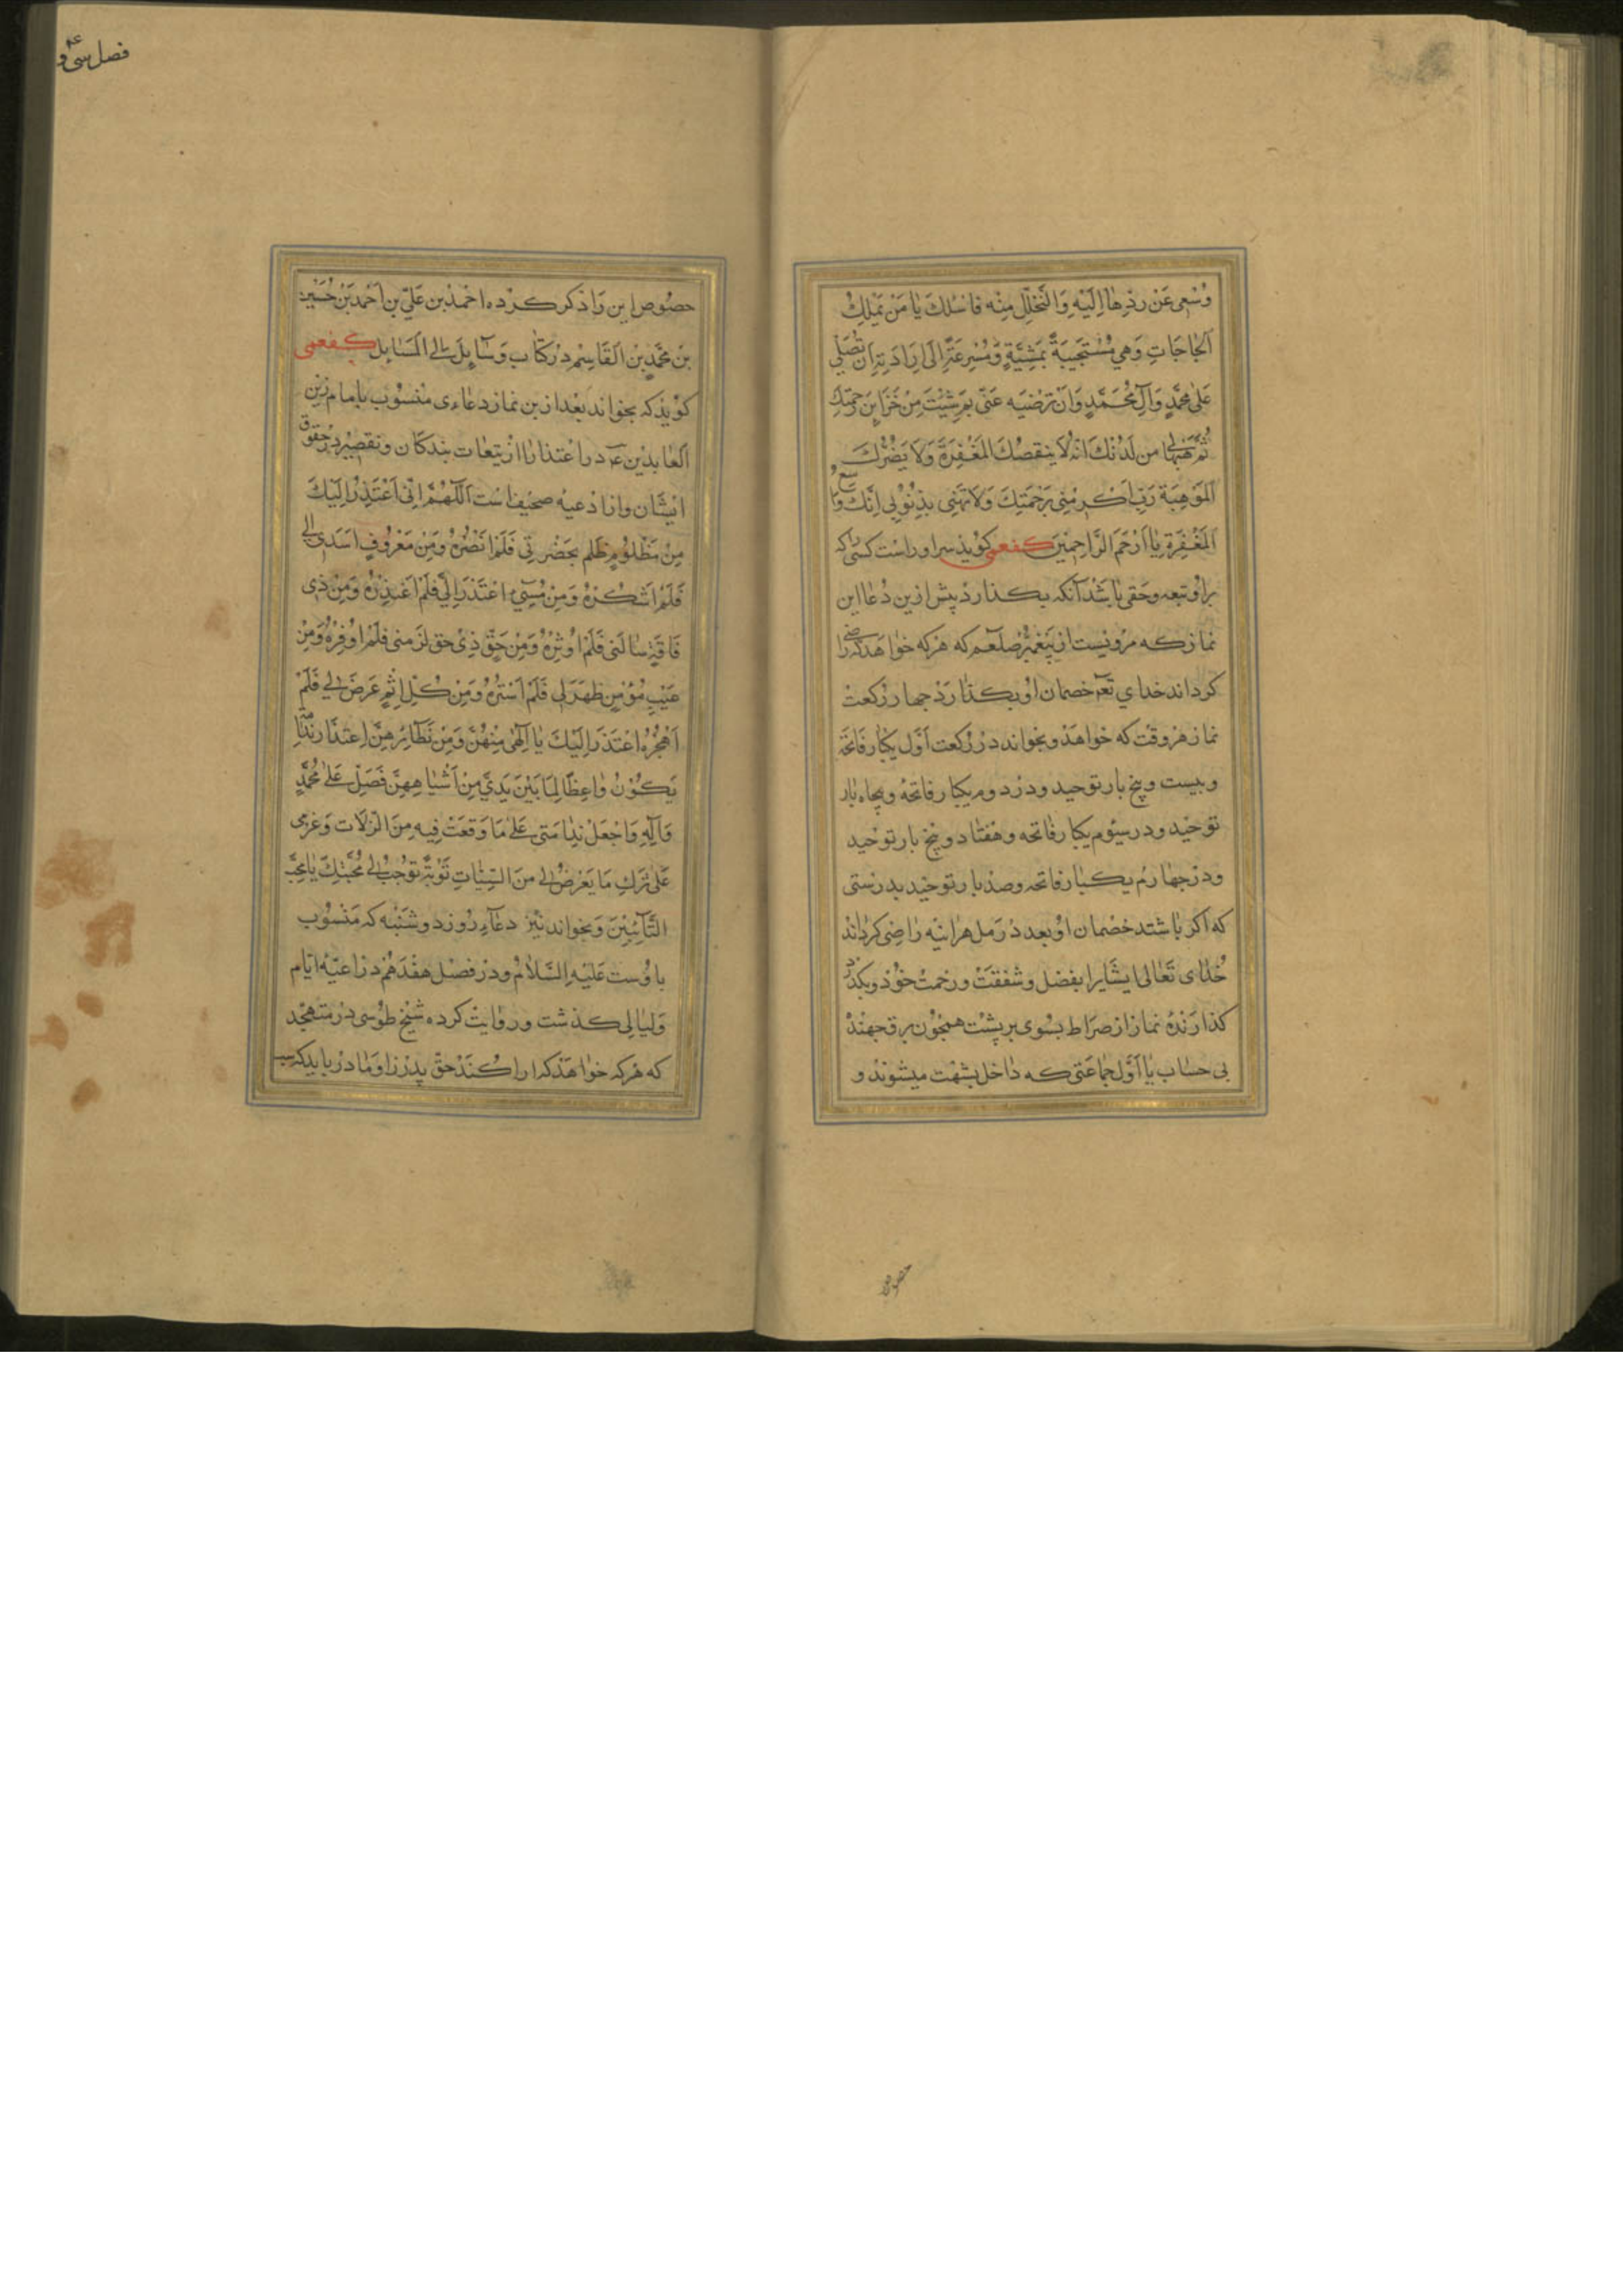 وُسْعِی عَنْ رَدِّهٰا اِلَیْهِ وَالتَّحَلُّلِ مِنْه فَاسْئَلُكَ یٰا مَنْ یَمْلِكُ
الْحٰاجَاتِ وَهِيَ مُسْتَجِیبَةٌ بِمَشِیَّةٍ وَمُسْرِعَةٌ اِلَی اِرَادَتِهِ اَنْ تُصَلِّي
عَلیٰ مُحَمَّدٍ وَآلِ مُحَمَّدٍ وَاَنْ تُرْضِیَه عَنّی بِمَ شِئْتَ مِنْ خَزَایِنِ رَحْمَتِكَ
ثُمَّ هَبْهٰا لِی من لَدُنْكَ اِنَّهُ لَا یَنقصُكَ الْمَغْفِرَةُ وَلَا یَضُرُّكَ
الْمَوْهِبَة رَبِّ اَكْرِمْنِی بِرَحْمَتِكَ وَلَا تُهِنِّی بِذُنُوْبِی اِنَّكَ وٰاسعُ
الْمَغْفِرَةِ یٰا اَرْحَمَ الرَّاحِمِیْنَ كفعمی كوُیذ سزاوراسْت كسی را كه
براوُ تبعه وحَقی بٰاشَدْ آنكه بكذارد پیش ازین دُعٰا این
نماز كه مرویست از پیغمبر صلعم كه هركه خوٰاهَد كه راضی
كرداند خدای تعٰ خصمان اوُ بكذٰارَد چهار رَكعت
نماز هر وقت كه خواهَدْ وبخوٰاند در رَكعت اَوَّل یكبار فَاتحَة
وبیست وپنج بار توحید ودر دوم یكبار فاتحهُ وپنجاه بٰار
توْحید ودر سیوُم یكبار فٰاتحه وهفتٰاد وپنج بار توْحید
ودر چهارُم یكبٰار فاتحه وصذ بار توحْید بدرستی
كه اكر بٰاشند خصْمان اوُ بعدد رَمل هرٰاینه رٰاضِی كردٰاندْ
خُدٰای تَعٰالیٰ ایشٰانرا بفضل وشفقتْ ورحمتْ خوْد وبكذرد
كذارَندهُ نماز از صرَاط بسُوی برپشْت همچُون برق جهندْ
بی حسٰاب یا اَوَّل جمٰاعَتی كه دٰاخل بشهْت میشوندْ و
حصوص
فصل سی و
حصُوص این رَا ذكر كرده احمدْ بن عَلیّ بن اَحْمد بَنْ حُسَیْن
بنْ مُحَمَّدٍ بْن الْقَاسِمْ درْ كتٰاب وَسٰآیِلَ الی الْمَسٰایِل كفعمی
كوْیذ كه بخواند بَعْد از ین نماز دعٰاءی منْسوُب بامٰام زین
الْعٰابدِیْن عٓ در اعْتذار از تبعٰات بندكٰان وتقصیْر درْ حقوق
ایْشٰان وان ازْ دعیهُ صحیفهٔ است اَللّٰهُمَّ اِنِّی اَعْتَذِرُ اِلَیْكَ
مِنْ مَظْلوُمٍ ظُلم بحَضْرَتِی فَلَمْ اَنْصُرْهُ وَمِنْ مَعْروُفٍ اسْدَیَ اِلَی
فَلَمْ اَشْكُرْهُ وَمِنْ مُسِیٓءٍ اعْتَذَرَ اِلَیَّ فَلَمْ اَعْذِرْهُ وَمِنْ ذِی
فَاقَةٍ سٰالَنِی فَلَمْ اوُثِرْهُ وَمِنْ حَقِّ ذِیْ حق لزَمنی فَلَمْ اوُفِرْهُ وَمِنْ
عَیْبِ مُؤْمِنٍ ظَهَرَ لِی فَلَمْ اَسْتُرْهُ وَمِنْ كُلّ اِثْمٍ عَرَضَ لِی فَلَمْ
اَهْجُرْهُ اعْتَذَرَ اِلَیْكَ یٰا اِلٰهیٰ مِنْهُنَّ وَمِنْ نَظٰآئِرِهِنَّ اِعْتذَارَ نَدٰامَة
یَكُوْنُ وٰاعِظًا لِمَا بَیْنَ یَدَیَّ مِنْ اَشْبٰاهِهِنَّ فَصَلِّ عَلیٰ مُحَمَّدٍ
وَآلِهِ وَاجْعَلْ نِدٰامَتی عَلیٰ مَا وَقَعْتُ فِیهِ مِنَ الزَّلَّات وَعَزْمی
عَلیٰ تَرْكِ مَا یَعْرِضُ لِی مِنَ السَّیِّئٰاتِ تَوْبَةً توُجُبْ لِی مُحَبَّتِكَ یٰا مُحِبَّ
التَّآئِبِیْنَ وَبخواند نیْز دعٰآءِ روُز دوشَنْبه كه مَنْسوُب
باوُست عَلیْهِ السَّلاٰمْ ودرْ فصْل هفْدَهُم درْ ادعیَّهُ ایّام
وَلیٰالِی كذشت وروٰایتْ كرده شیْخ طوُسی درْ متهجْد
كه هْركه خوٰاهَدْ كه ادا كُنَدْ حقّ پدرْ رٰا ومٰا درْ باید كه